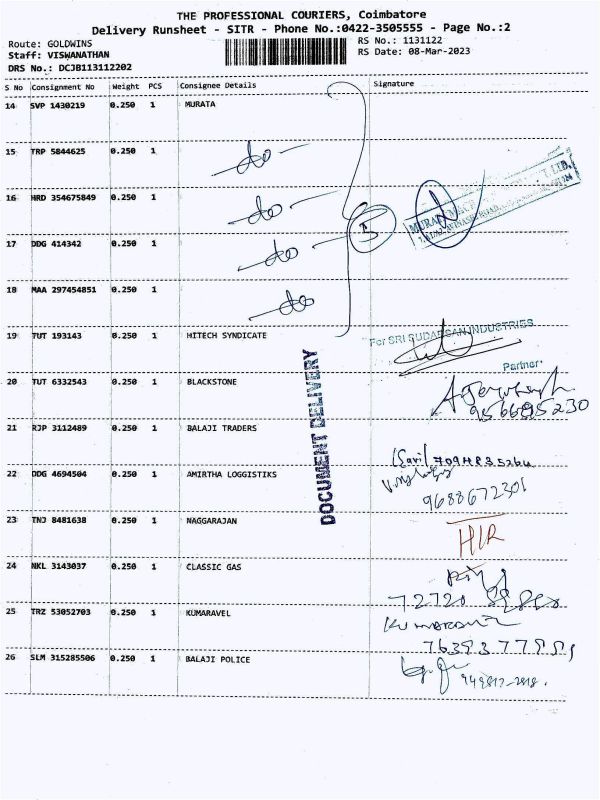 THE PROFESSIONAL COURIERS, Coimbatore
Delivery Runsheet - SITR - Phone No.:0422-3505555 - Page No.:2
Route: GOLDWINS
Staff: VISWANATHAN
DRS No.: DCJB113112202
RS No.: 1131122
RS Date: 08-Mar-2023
S No Consignment No Weight PCS Consignee Details Signature
14 SVP 1430219 0.250 1 MURATA
15 TRP 5844625 0.250 1 -do-
16 HRD 354675849 0.250 1 -do-
17 DDG 414342 0.250 1 -do-
18 MAA 297454851 0.250 1 -do-
5
19 TUT 193143 0.250 1 HITECH SYNDICATE
For SRI SUDARSAN INDUSTRIES
Partner
20 TUT 6332543 0.250 1 BLACKSTONE
DOCUMENT DELIVERY
21 RJP 3112489 0.250 1 BALAJI TRADERS
22 DDG 4694504 0.250 1 AMIRTHA LOGGISTIKS
9688672301
23 TNJ 8481638 0.250 1 NAGGARAJAN
24 NKL 3143037 0.250 1 CLASSIC GAS
25 TRZ 53052703 0.250 1 KUMARAVEL
26 SLM 315285506 0.250 1 BALAJI POLICE